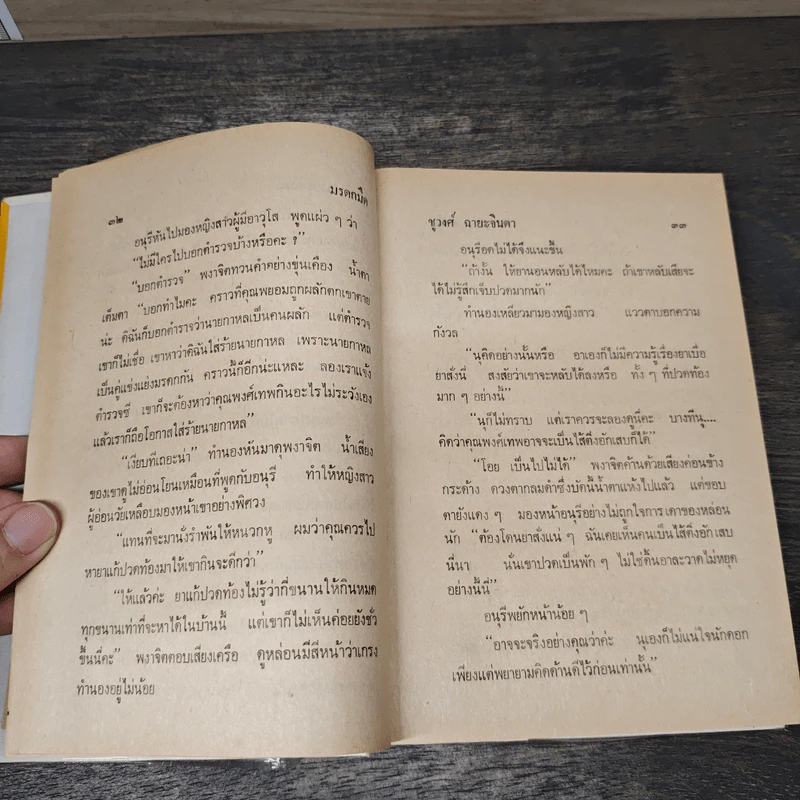 ๓๒
มรดกมืด
อนุรีหันไปมองหญิงสาวผู้มีอาวุโส พูดแผ่ว ๆ ว่า
“ไม่มีใครไปบอกตำรวจบ้างหรือคะ ?”
“บอกตำรวจ” พงาจิตทวนคำอย่างขุ่นเคือง น้ำตา
เต็มตา “บอกทำไมคะ คราวที่คุณพยอมถูกผลักตกเขาตาย
น่ะ ดิฉันก็บอกตำราจว่านายกาหลเป็นคนผลัก แต่ตำรวจ
เขาก็ไม่เชื่อ เขาหาว่าดิฉันใส่ร้ายนายกาหล เพราะนายกาหล
เป็นคู่แข่งแย่งมรดกกัน คราวนี้ก็อีกน่ะแหละ ลองเราแจ้ง
ตำรวจซี เขาก็จะต้องหาว่าคุณพงศ์เทพกินอะไรไม่ระวังเอง
แล้วเราก็ถือโอกาสใส่ร้ายนายกาหล”
“เงียบทีเถอะน่า” ทำนองหันมาดุพงาจิต น้ำเสียง
ของเขาดูไม่อ่อนโยนเหมือนที่พูดกับอนุรี ทำให้หญิงสาว
ผู้อ่อนวัยเหลือบมองหน้าเขาอย่างพิศวง
“แทนที่จะมานั่งรำพันให้หนวกหู ผมว่าคุณควรไป
หายาแก้ปวดท้องมาให้เขากินจะดีกว่า”
“ให้แล้วค่ะ ยาแก้ปวดท้องไม่รู้ว่ากี่ขนานให้กินหมด
ทุกขนานเท่าที่จะหาได้ในบ้านนี้ แต่เขาก็ไม่เห็นค่อยยังชั่ว
ขึ้นนี่คะ” พงาจิตตอบเสียงเครือ ดูหล่อนมีสีหน้าว่าเกรง
ทำนองอยู่ไม่น้อย
ชูวงศ์ ฉายะจินดา
๓๓
อนุรีอดไม่ได้จึงแนะขึ้น
“ถ้างั้น ให้ยานอนหลับได้ไหมคะ ถ้าเขาหลับเสียจะ
ได้ไม่รู้สึกเจ็บปวดมากนัก”
ทำนองเหลียวมามองหญิงสาว แววตาบอกความ
กังวล
“นุคิดอย่างนั้นหรือ อาเองก็ไม่มีความรู้เรื่องยาเบื่อ
ยาสั่งนี่ สงสัยว่าเขาจะหลับได้ลงหรือ ทั้ง ๆ ที่ปวดท้อง
มาก ๆ อย่างนี้”
“นุก็ไม่ทราบ แต่เราควรจะลองดูนี่คะ บางทีนุ....
คิดว่าคุณพงศ์เทพอาจจะเป็นไส้ติ่งอักเสบก็ได้”
“โอย เป็นไปไม่ได้” พงาจิตค้านด้วยเสียงค่อนข้าง
กระด้าง ดวงตากลมคำซึ่งบัดนี้น้ำตาแห้งไปแล้ว แต่ขอบ
ตายังแดง ๆ มองหน้าอนุรีอย่างไม่ถูกใจการเดาของหล่อน
นัก “ต้องโดนยาสั่งแน่ ๆ ฉันเคยเห็นคนเป็นไส้ติ่งอักเสบ
นี่นา นั่นเขาปวดเป็นพัก ๆ ไม่ใช่ดิ้นอาละวาดไม่หยุด
อย่างงี้นี่”
อนุรีพยักหน้าน้อย ๆ
“อาจจะจริงอย่างคุณว่าค่ะ นุเองก็ไม่แน่ใจนักดอก
เพียงแต่พยายามคิดด้านดีไว้ก่อนเท่านั้น”